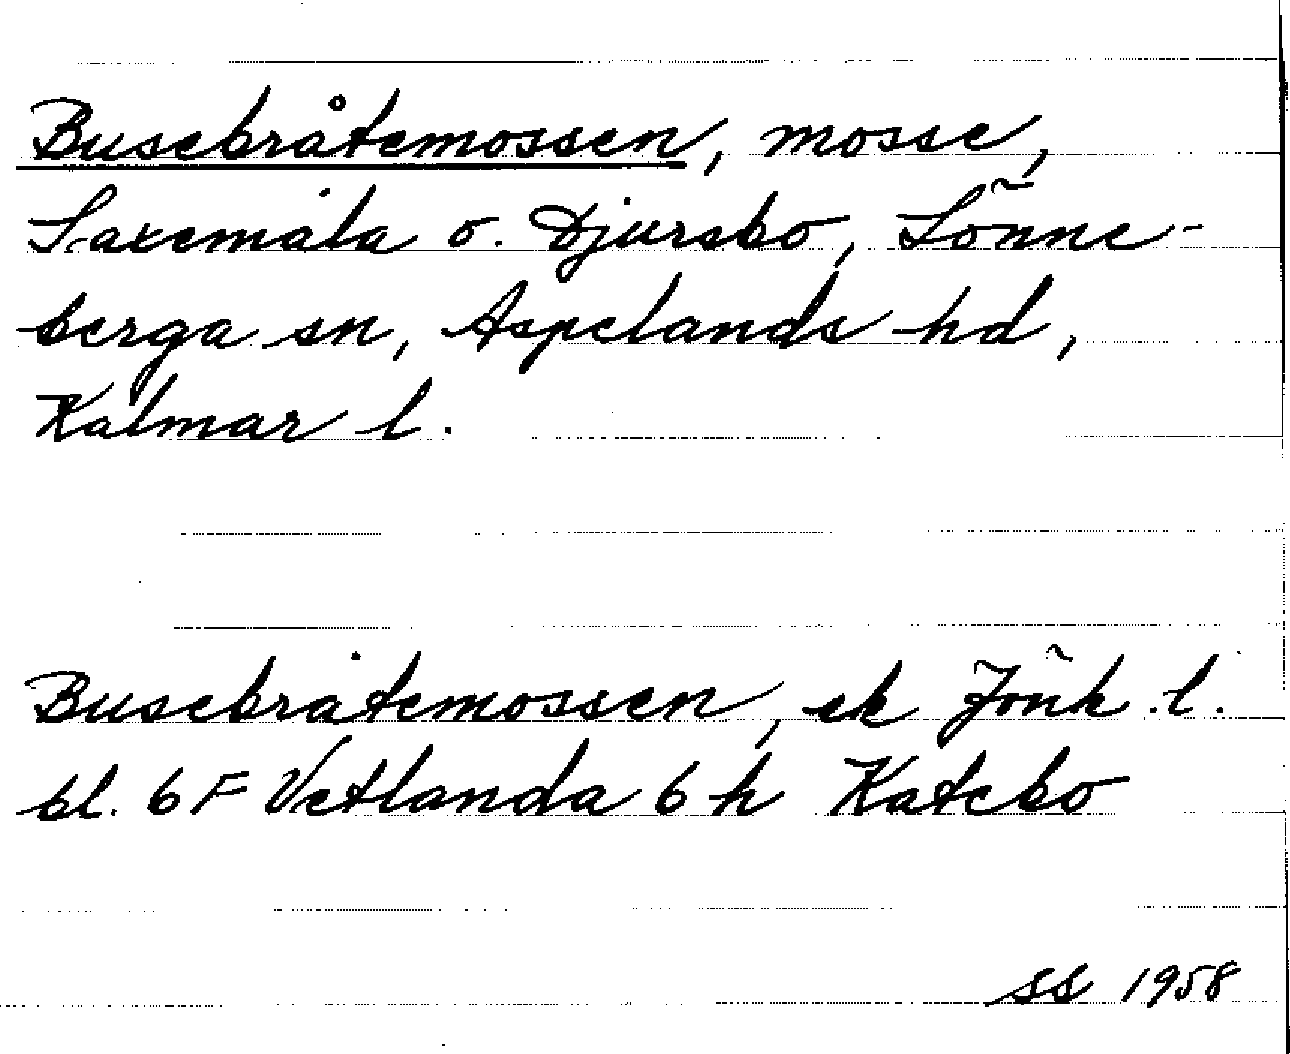 Busebråtemossen, mosse,
Saxemåla o. Djursbo, Lönne-
berga sn, Aspelands hd,
Kalmar l.
Busebråtemossen, ek Jönk. l.
bl. 6F Vetlanda 6 h Katebo
SS 1958